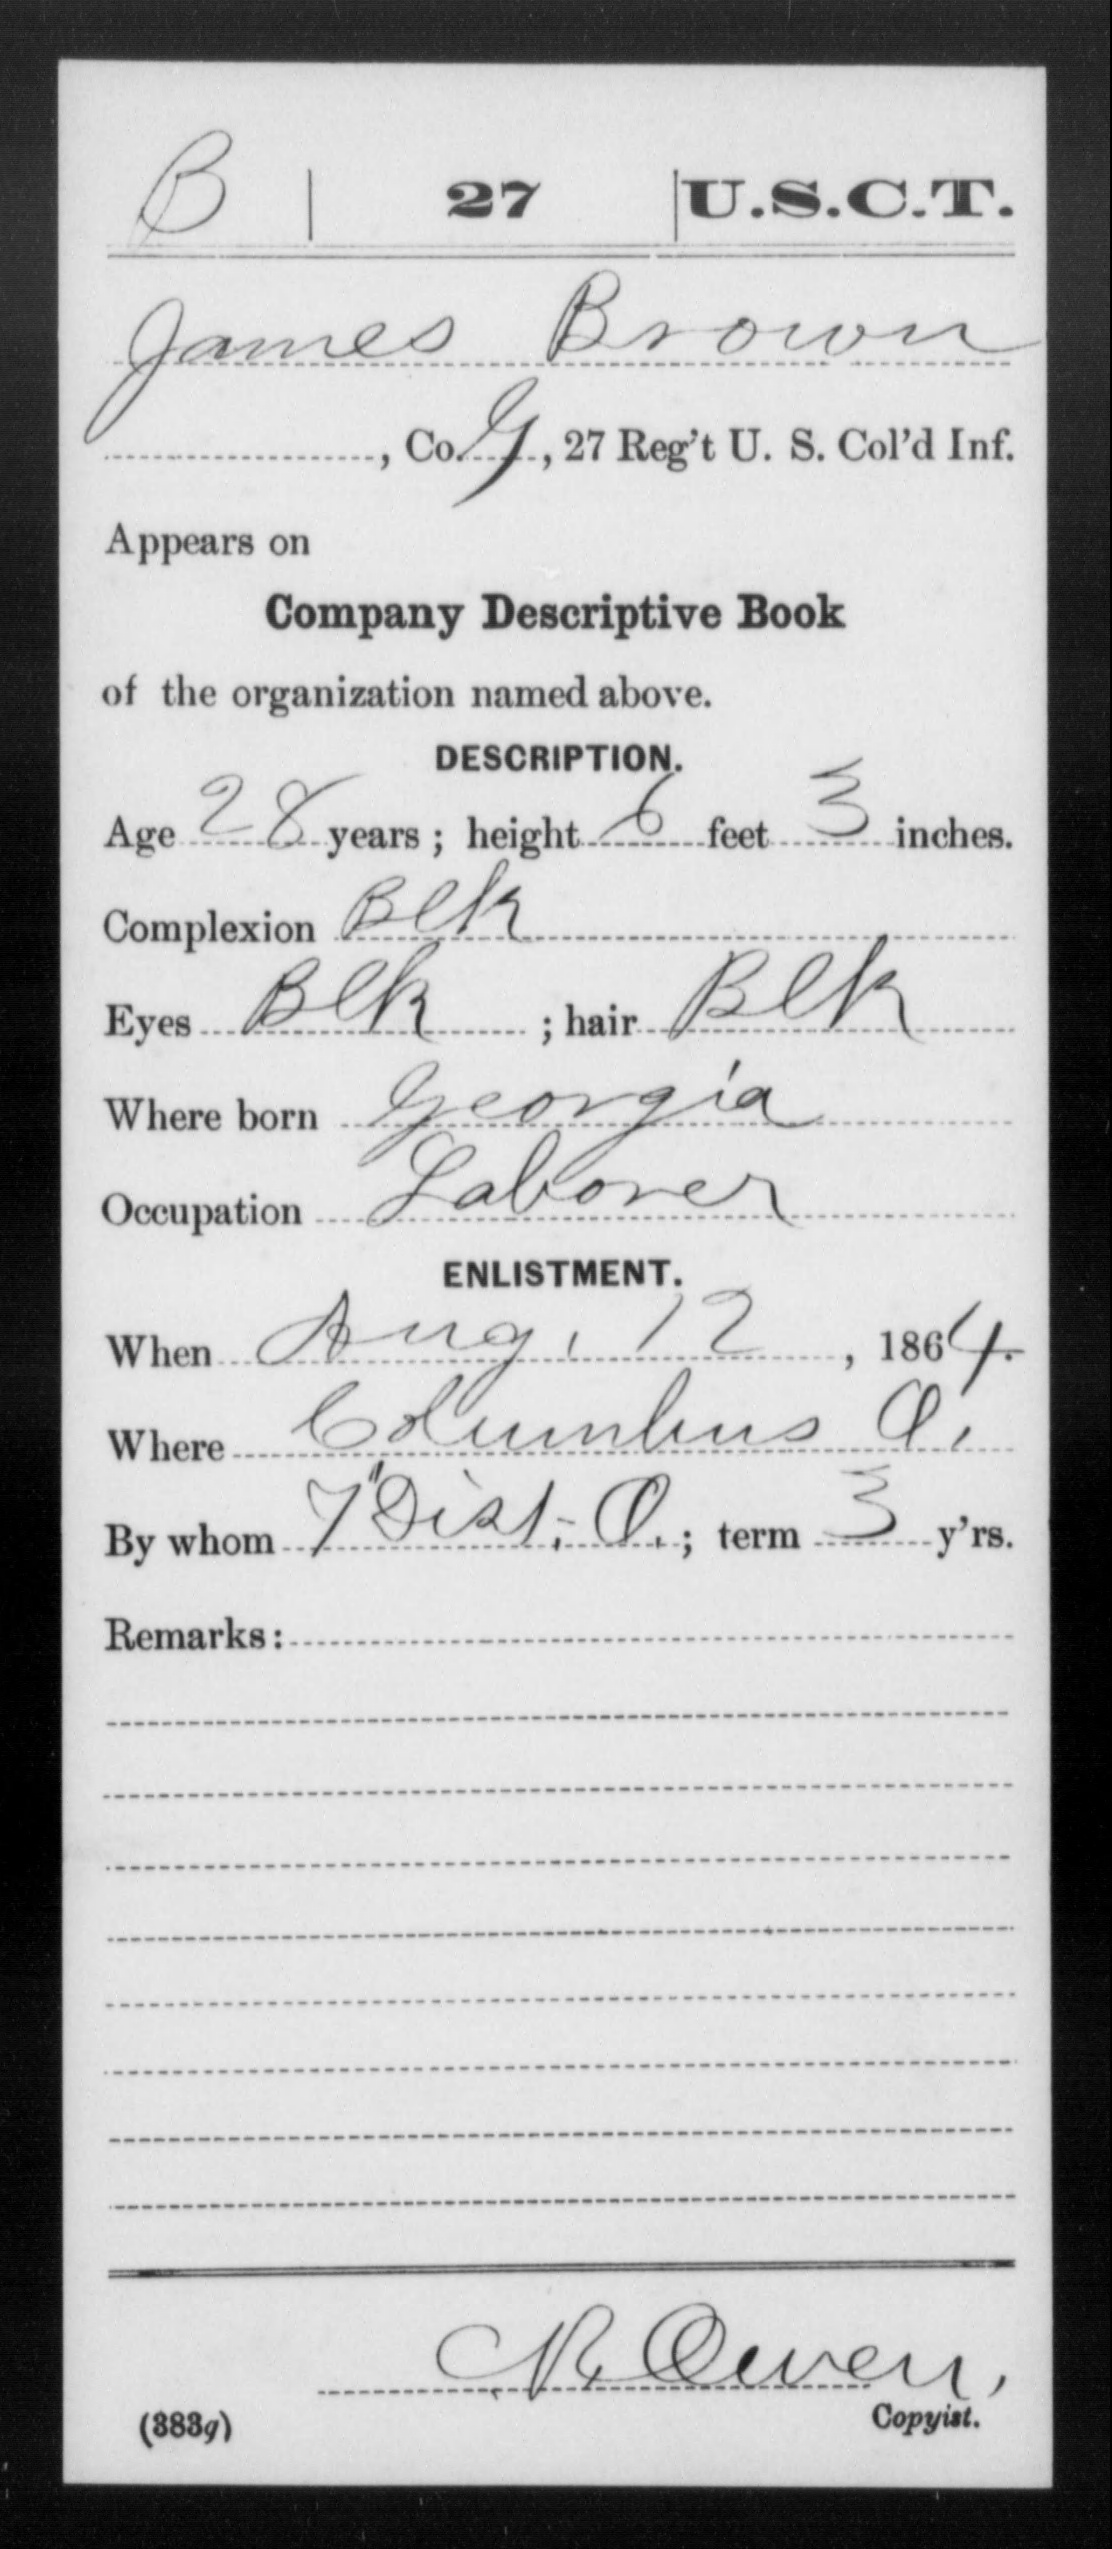 B | 27 | U.S.C.T.
James Brown
, Co. G, 27 Reg't U. S. Col'd Inf.
Appears on
Company Descriptive Book
of the organization named above.
DESCRIPTION.
Age 28 years; height 6 feet 3 inches.
Complexion Blk
Eyes Blk; hair Blk
Where born Georgia
Occupation Laborer
ENLISTMENT.
When Aug. 12, 1864.
Where Columbus O.
By whom 7" Dist. O.; term 3 y'rs.
Remarks:
Owen,
(383g) Copyist.